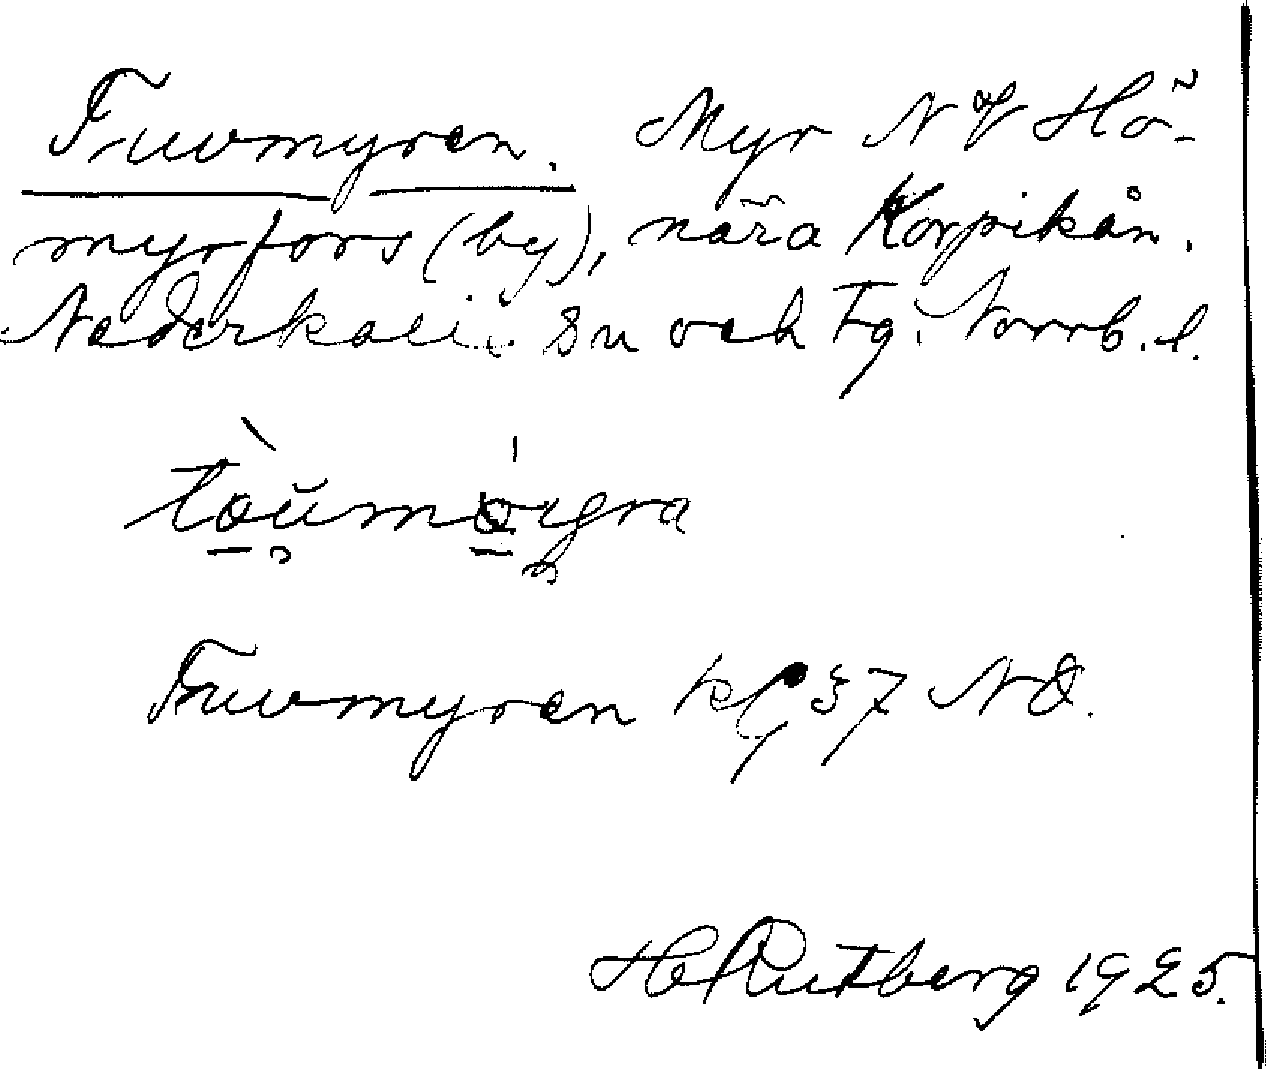 Tuvmyren. Myr NV Hö-
myrfors (by), nära Korpikån.
Nederkalix Sn och Tg. Norrb. l.
tòŭmóyra
Tuvmyren kg 37 NO.
H Rutberg 1925.